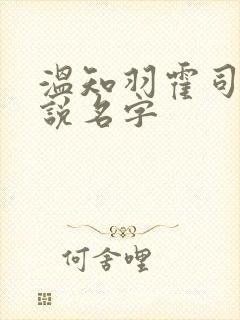 溫知羽霍司
說名字
何舍哩